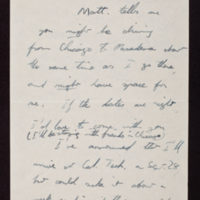 Matt. tells me
you might be driving
from Chicago to Pasadena about
the same time as I go there,
and might have space for
me. If the dates are right
I'd love to come with you
(I'll be staying with friends in Chicago)
I've announced that I'll
arrive at Cal Tech. on Sep. 28
but could make it about a